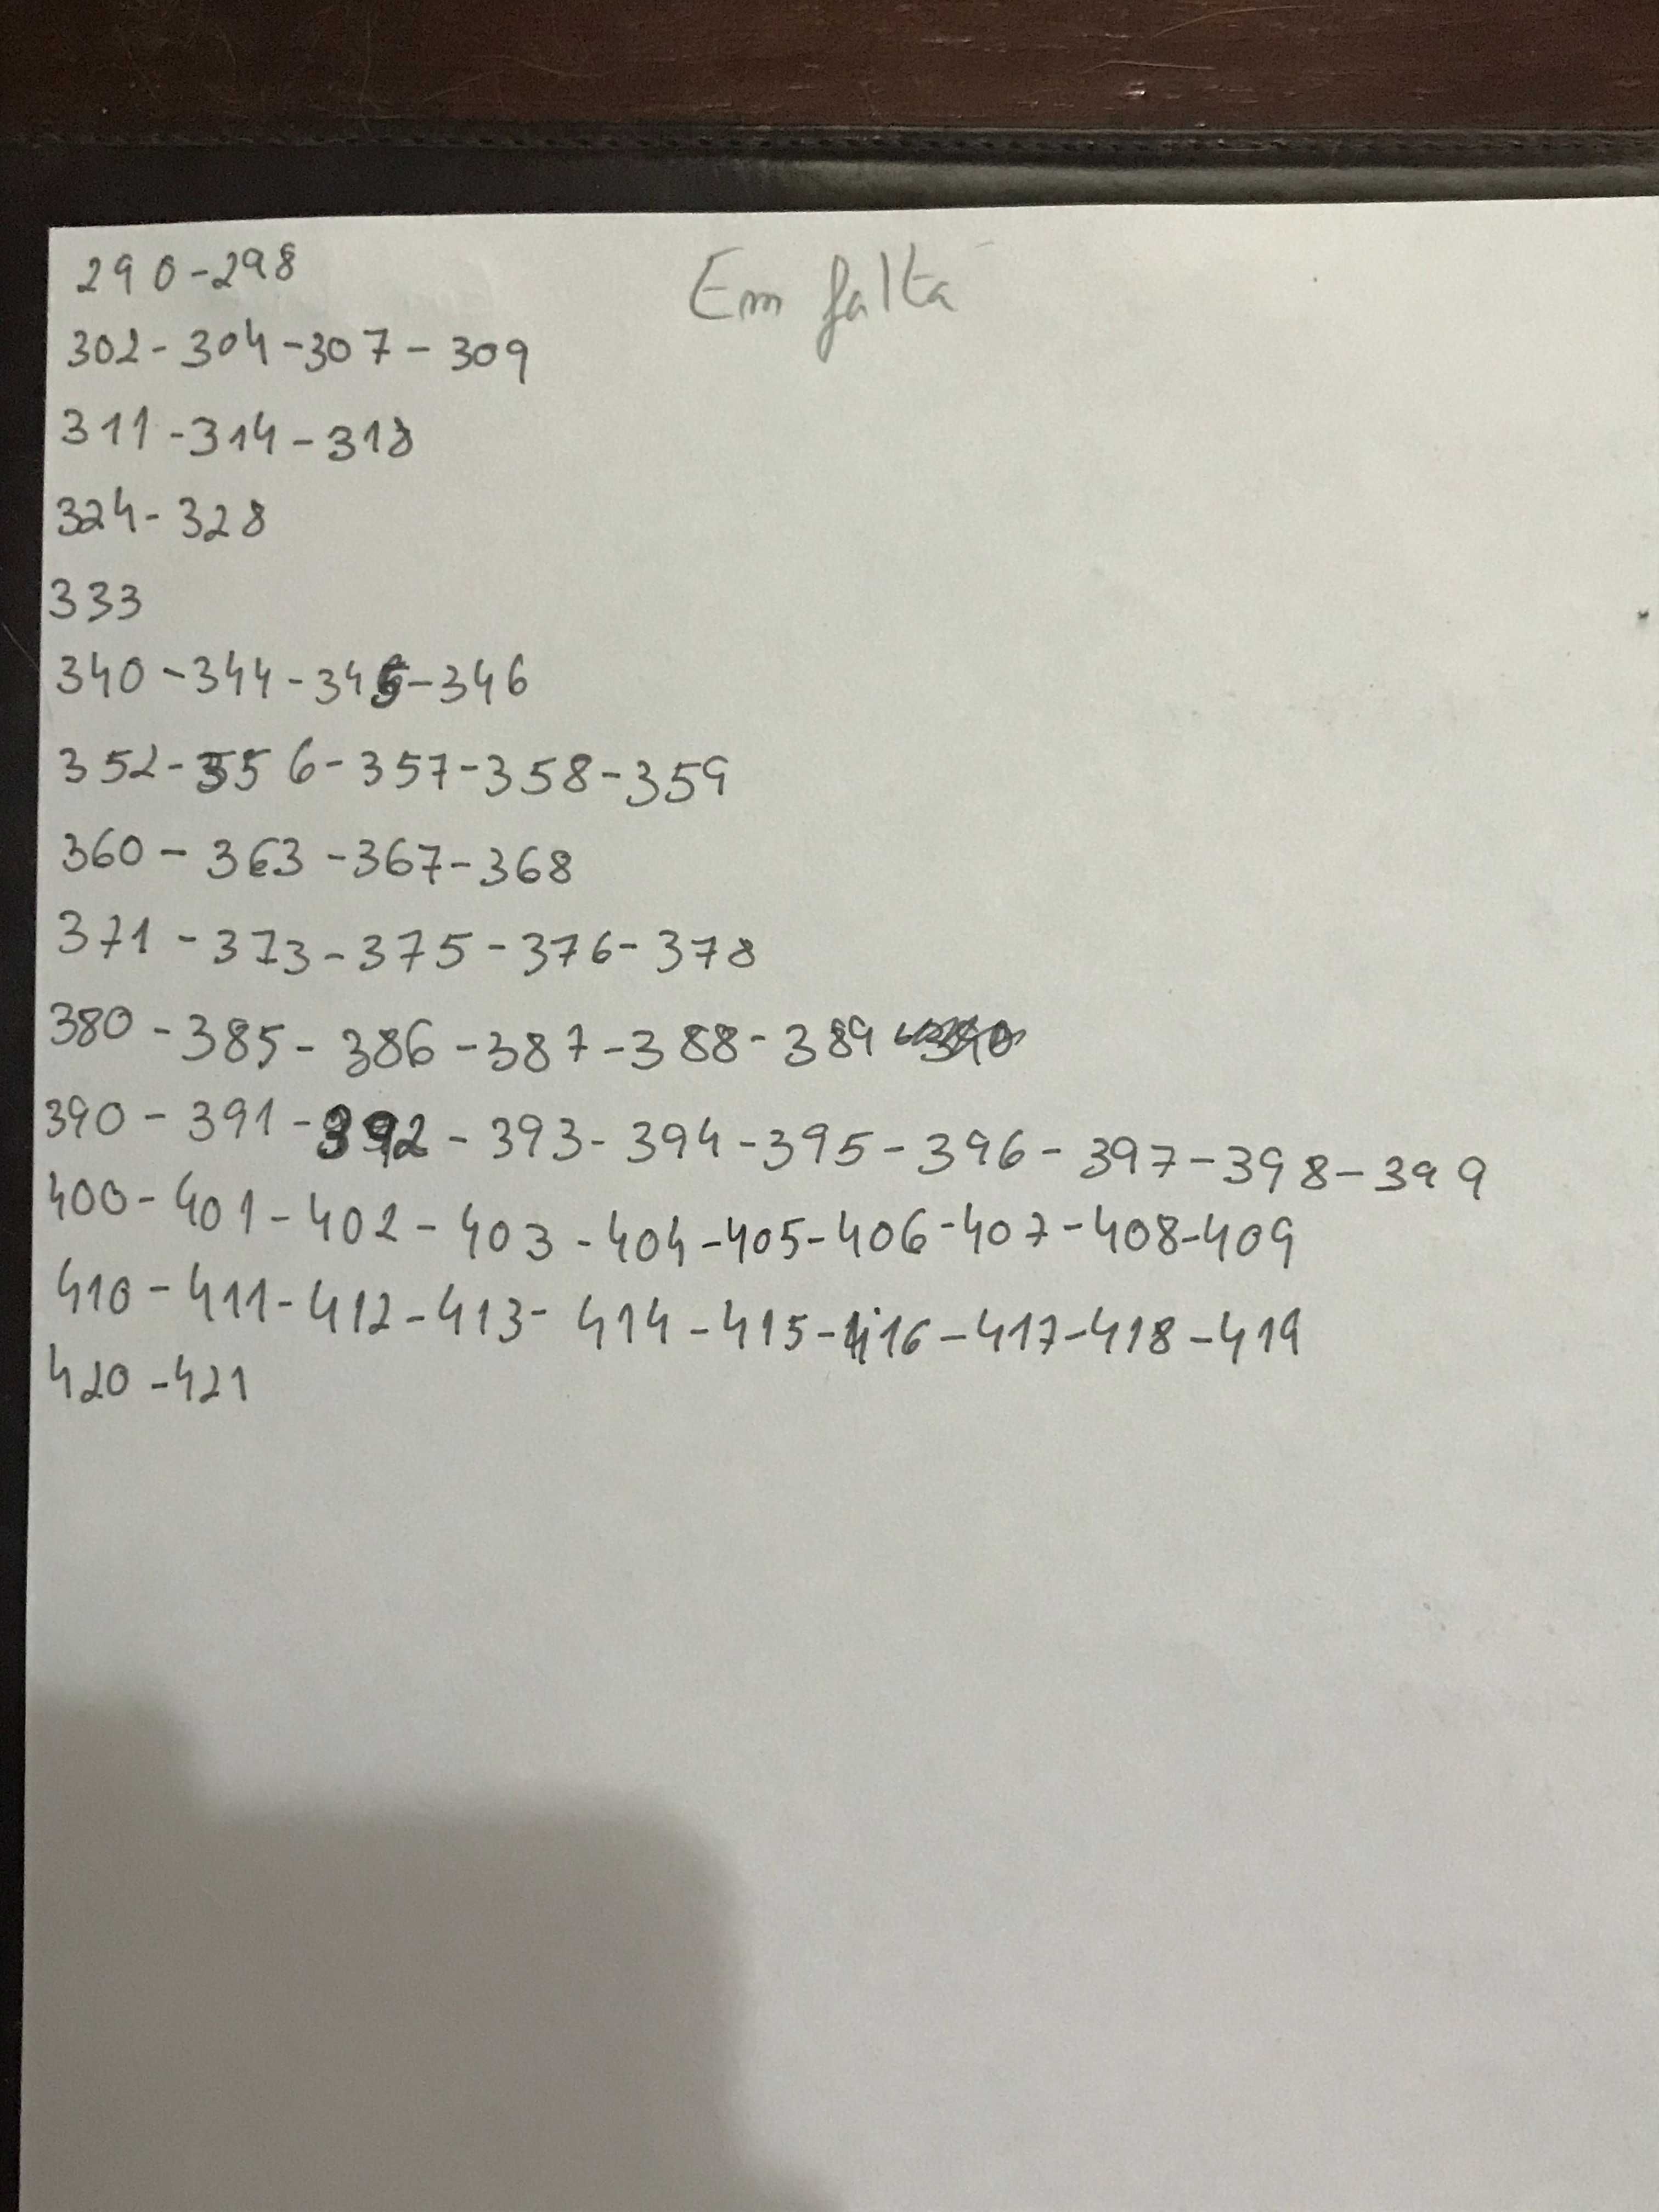 290-298
Em falta
302-304-307-309
311-314-318
324-328
333
340-344-345-346
352-356-357-358-359
360-363-367-368
371-373-375-376-378
380-385-386-387-388-389
390-391-392-393-394-395-396-397-398-399
400-401-402-403-404-405-406-407-408-409
410-411-412-413-414-415-416-417-418-419
420-421